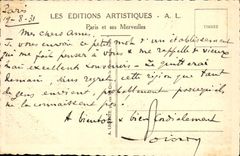 Paris
19-8-31
LES EDITIONS ARTISTIQUES - A. L.
Paris et ses Merveilles
Mes chers amis,
Je vous envoie ce petit mot d'un établissement
qui me fait penser à vous & me rappelle de vieux
mais excellents souvenirs. Je quitterai
demain, sans regret, cette région que tant
de gens envient, probablement parce qu'ils
ne la connaissent pas!
A bientôt & bien cordialement